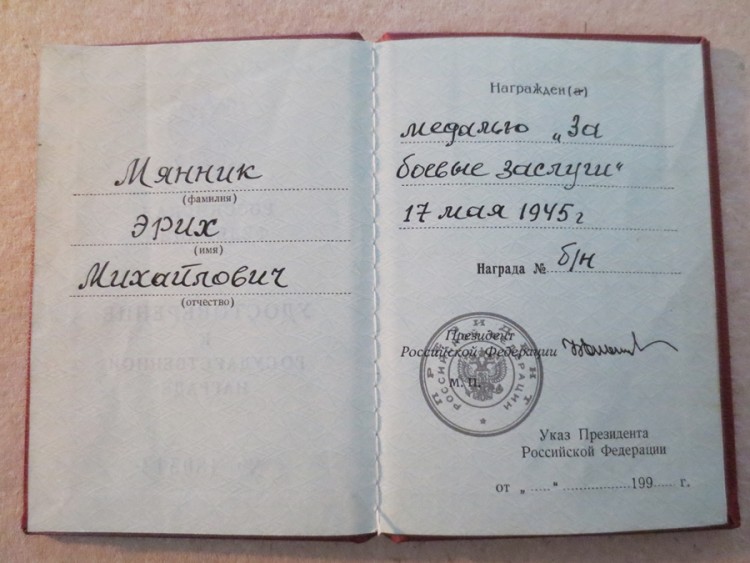 Мянник
(фамилия)
Эрих
(имя)
Михайлович
(отчество)
Награжден(а)
медалью „За
боевые заслуги“
17 мая 1945 г
Награда № б/н
Президент
Российской Федерации
М. П.
ПРЕЗИДЕНТ
РОССИЙСКОЙ ФЕДЕРАЦИИ
Указ Президента
Российской Федерации
от „.....“ ................ 199..... г.